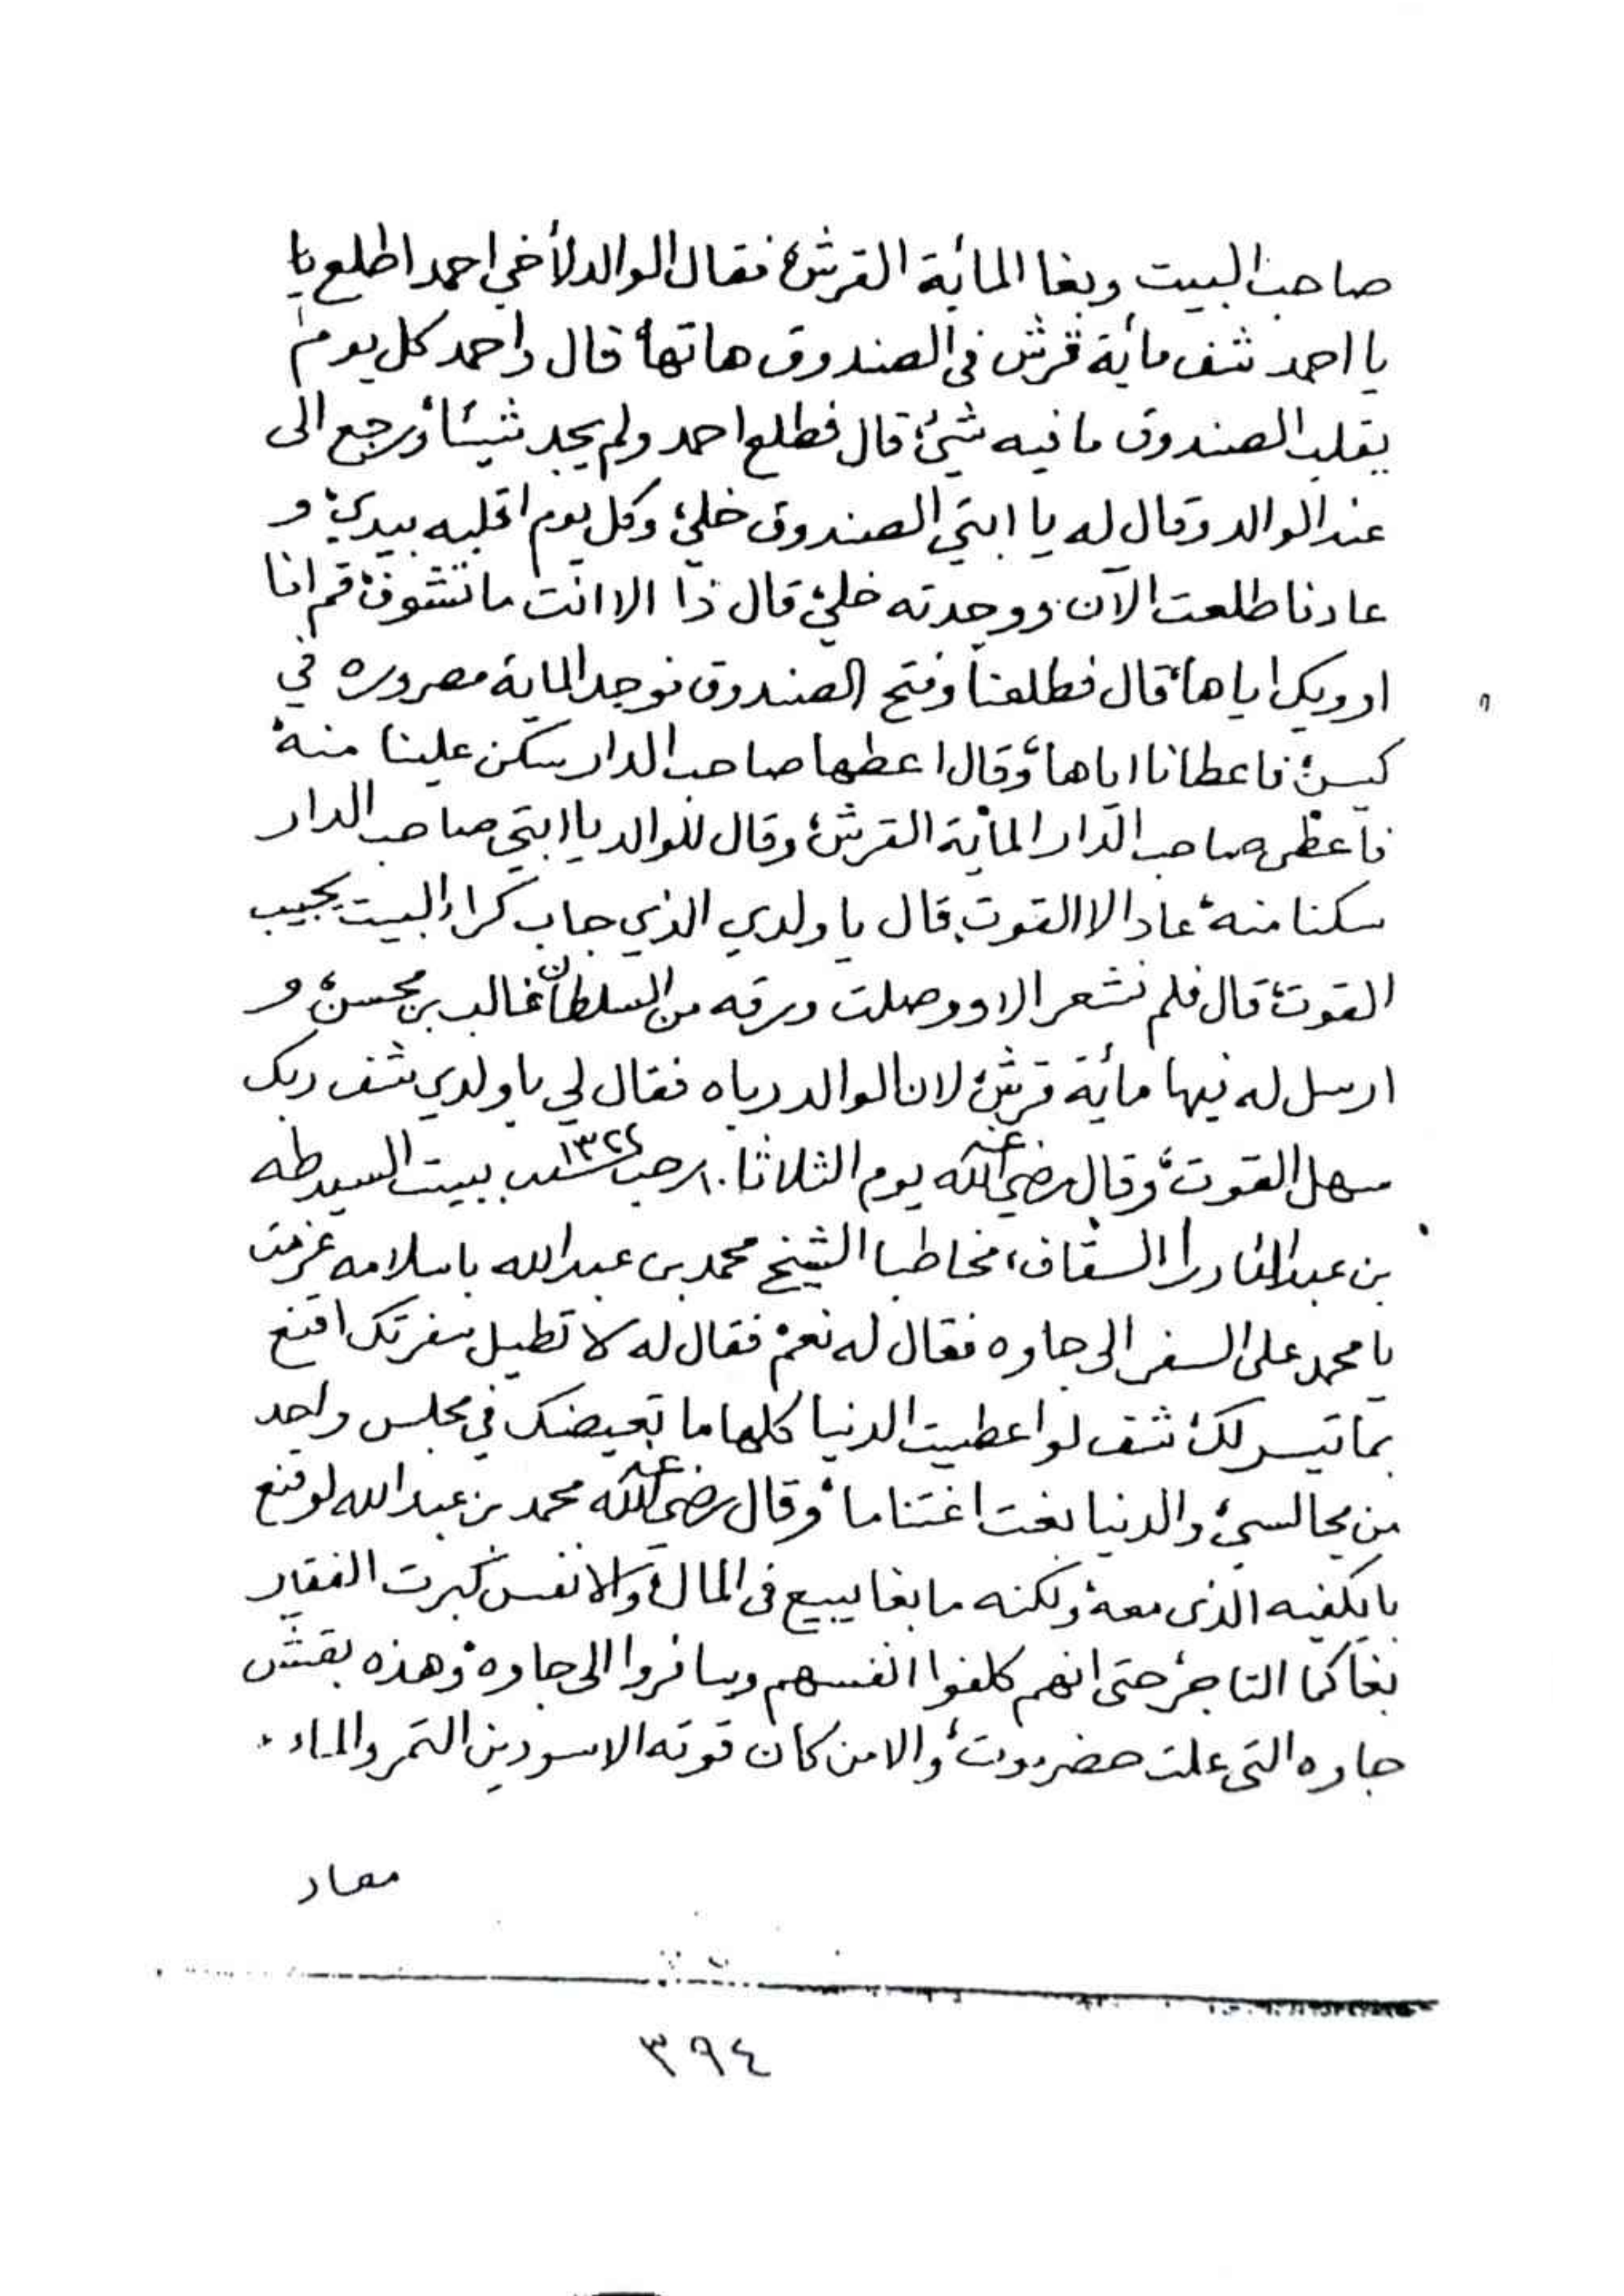 صاحب البيت وبغا المائة القرش، فقال الوالد لأخي احمد اطلع يا
يا احمد شف مائة قرش في الصندوق هاتها، قال واحمد كل يوم
يقلب الصندوق ما فيه شيئ، قال فطلع احمد ولم يجد شيئا، ورجع الى
عند الوالد وقال له يا ابتي الصندوق خلي، وكل يوم اقلبه بيدي، و
عادنا طلعت الآن ووجدته خلي، قال ذا الا انت ما تشوف، قم انا
اوويك اياها، قال فطلعنا وفتح الصندوق فوجد الماية مصروره في
كيس، فاعطانا اياها، وقال اعطها صاحب الدار سكن علينا منه،
فأعطى صاحب الدار المائة القرش، وقال للوالد يا ابتي صاحب الدار
سكنا منه، عاد الا القوت، قال يا ولدي الذي جاب كراء البيت يجيب
القوت، قال فلم نشعر الا ووصلت ورقه من السلطان غالب بن محسن، و
ارسل له فيها مائة قرش، لان الوالد رباه فقال لي يا ولدي شف ربك
سهل القوت، وقال رضي الله عنه يوم الثلاثا ١٠ رجب سنة ١٣٢٤ ببيت السيد طه
بن عبد القادر السقاف، مخاطبا الشيخ محمد بن عبد الله باسلامه عزمت
يا محمد على السفر الى جاوه فقال له نعم، فقال له لا تطيل سفرتك اقنع
بما تيسر لك، شف لو اعطيت الدنيا كلها ما تعيضك في مجلس واحد
من مجالسي، والدنيا بغت اغتناما، وقال رضي الله عنه محمد بن عبد الله لو قنع
با يكفيه الذي معه، ولكنه ما بغا يبيع في المال، والا نفس كبرت الفقير
بغا كما التاجر، حتى انهم كلفوا انفسهم وسافروا الى جاوه، وهذه بقش
جاوه التي علت حضرموت، والا من كان قوته الاسودين التمر والماء،
معاد
٣٩٤